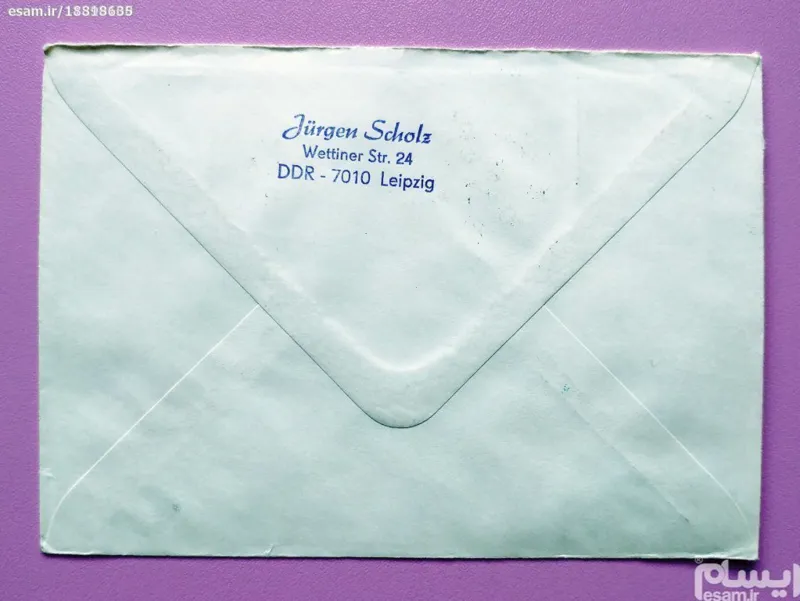 esam.ir/18818685
Jürgen Scholz
Wettiner Str. 24
DDR - 7010 Leipzig
ایسام
esam.ir